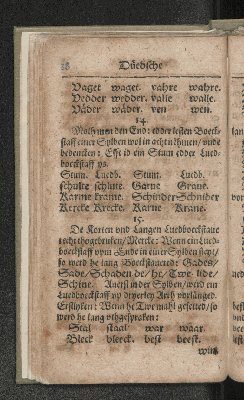 28 Düedsche
Vaget waget. vahre wahre.
Vedder wedder. valle walle.
Väder wäder. ven wen.
14
Moth men den End: edder lesten Boeck-
staff einer Sylben wol in acht nhmen/ unde
bedencken: Effe id ein Stum edder Lued-
boeckstaff ys.
Stum. Luedb. Stum. Luedb.
schulte schlute. Garne Grane.
Karme krame. Schinder Schnider
Kercke Krecke. Karne Krane.
15.
De Korten und Langen Luedboeckstaue
recht thogebruken/ Mercke: Wenn ein Lued-
boeckstaff vpm Ende in einer Sylben steyt/
so werd he lang Boeckstaueret: Gades/
Sade/ Schaden de/ he/ Twe/ lide/
Schine. Auerst in der Sylben/ werd ein
Luedboeckstaff vp dryerley Arth vorlänged.
Erstlyken: Wenn he Twe mahl gesettet/ so
werd he lang vthgespraken:
Stal staal war waar.
Bleck bleeck. best beest.